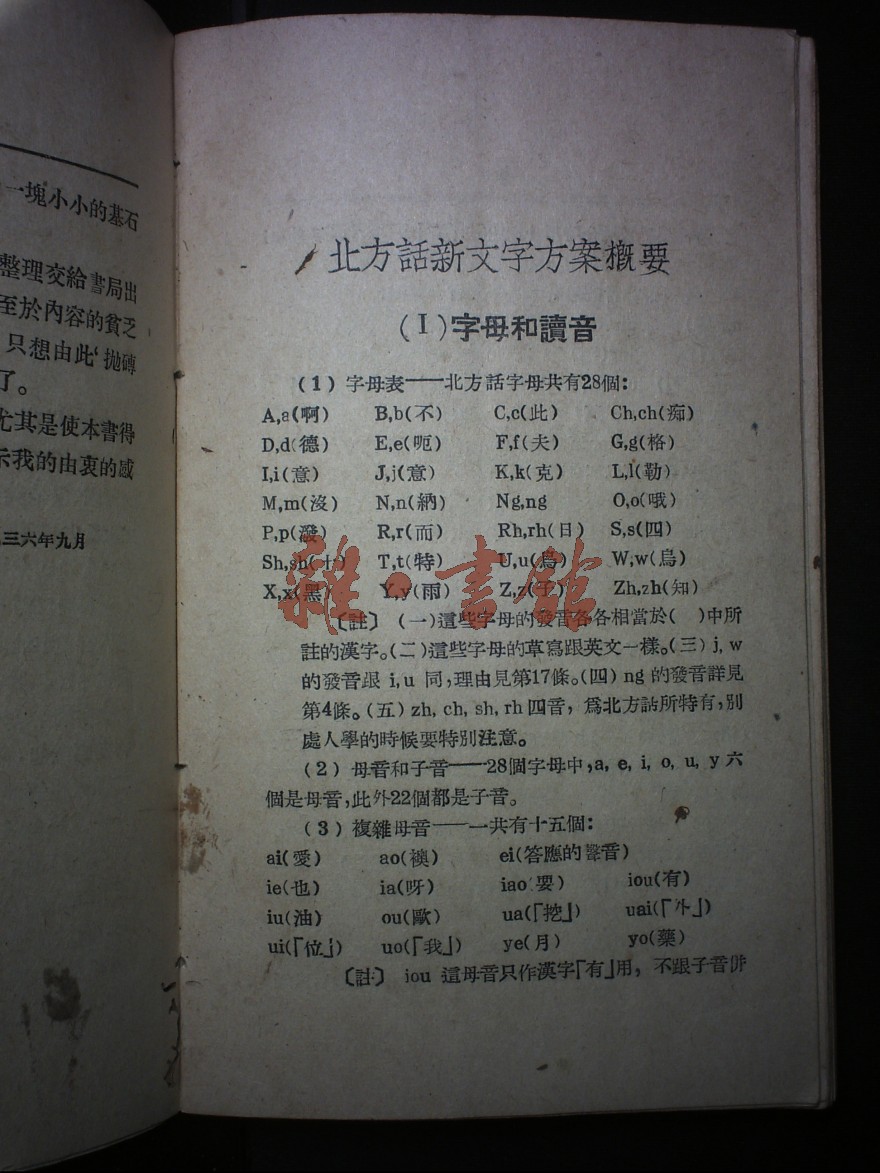 一塊小小的基石
整理交給書局出
至於內容的貧乏
只想由此‘拋磚
了。
尤其是使本書得
示我的由衷的感
三六年九月
北方話新文字方案概要
(I)字母和讀音
(1) 字母表——北方話字母共有28個:
A,a(啊) B,b(不) C,c(此) Ch,ch(痴)
D,d(德) E,e(呃) F,f(夫) G,g(格)
I,i(意) J,j(意) K,k(克) L,l(勒)
M,m(沒) N,n(納) Ng,ng O,o(哦)
P,p(潑) R,r(而) Rh,rh(日) S,s(四)
Sh,sh(十) T,t(特) U,u(烏) W,w(烏)
X,x(黑) Y,y(雨) Z,z(子) Zh,zh(知)
〔註〕 (一)這些字母的發音各各相當於( )中所
註的漢字。(二)這些字母的草寫跟英文一樣。(三) j, w
的發音跟 i, u 同,理由見第17條。(四) ng 的發音詳見
第4條。(五) zh, ch, sh, rh 四音, 爲北方話所特有,別
處人學的時候要特別注意。
(2) 母音和子音——28個字母中, a, e, i, o, u, y 六
個是母音,此外22個都是子音。
(3) 複雜母音——一共有十五個:
ai(愛) ao(襖) ei(答應的聲音)
ie(也) ia(呀) iao(要) iou(有)
iu(油) ou(歐) ua(「挖」) uai(「外」)
ui(「位」) uo(「我」) ye(月) yo(藥)
〔註〕 iou 這母音只作漢字「有」用, 不跟子音併
雜·書館